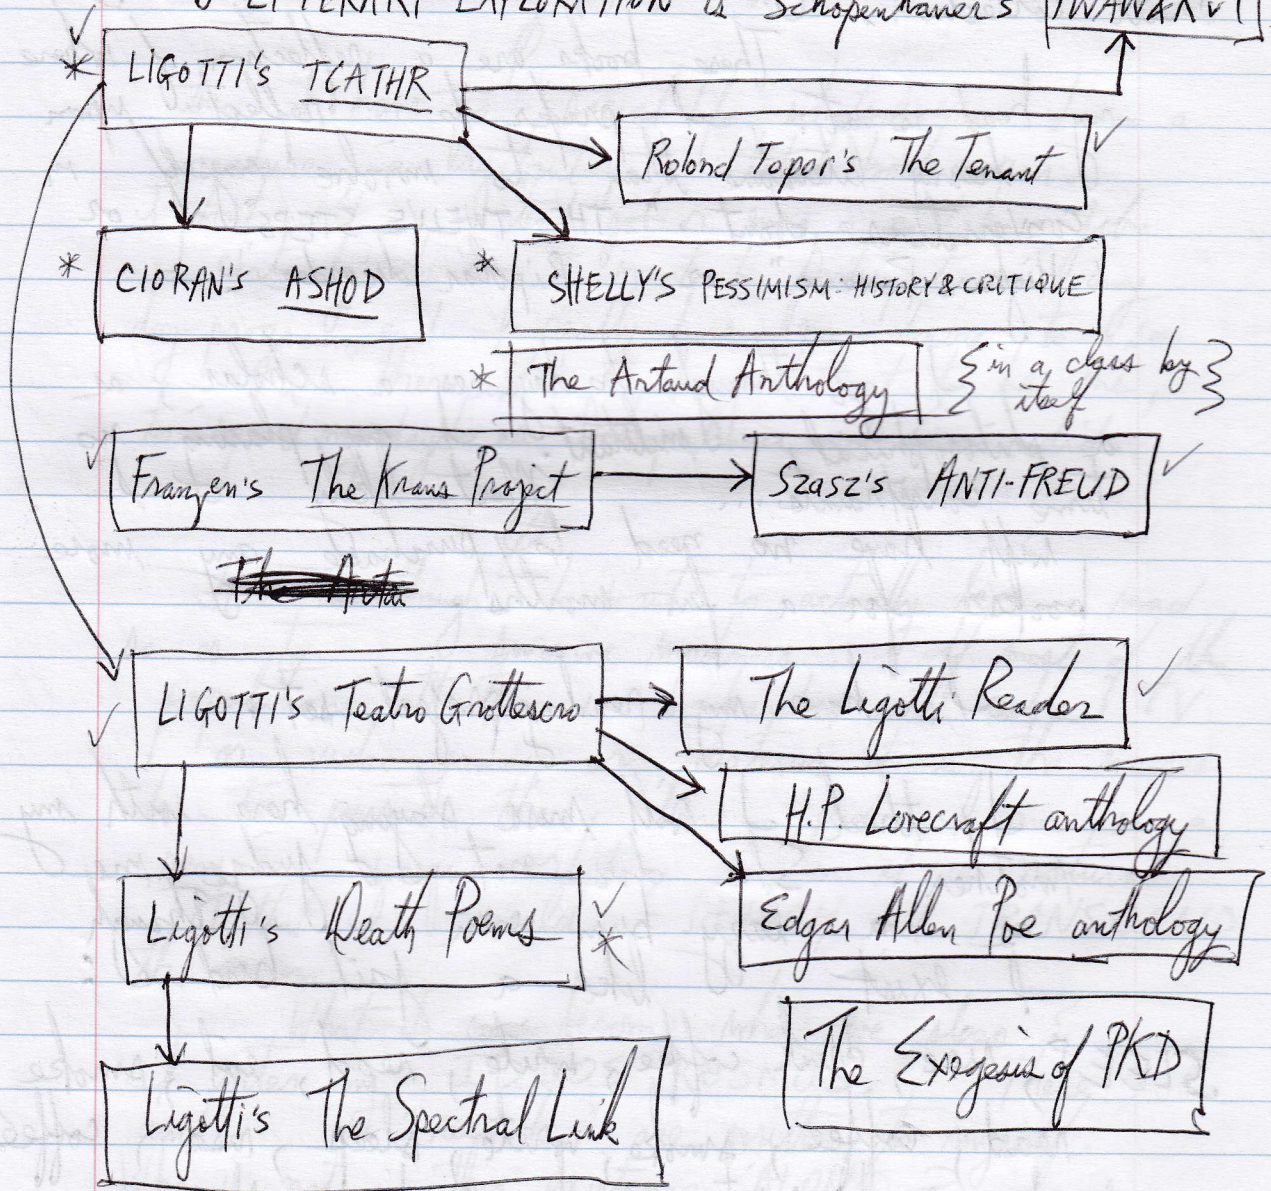 LITERARY EXPLORATION is Schopenhauer's TWAW&R V1
LIGOTTI's TCATHR
Rolond Topor's The Tenant
CIORAN's ASHOD
SHELLY'S PESSIMISM: HISTORY & CRITIQUE
The Artaud Anthology {in a class by itself}
Franzen's The Kraus Project
Szasz's ANTI-FREUD
LIGOTTI's Teatro Grottescro
The Ligotti Reader
H.P. Lovecraft anthology
Ligotti's Death Poems
Edgar Allen Poe anthology
The Exegesis of PKD
Ligotti's The Spectral Link